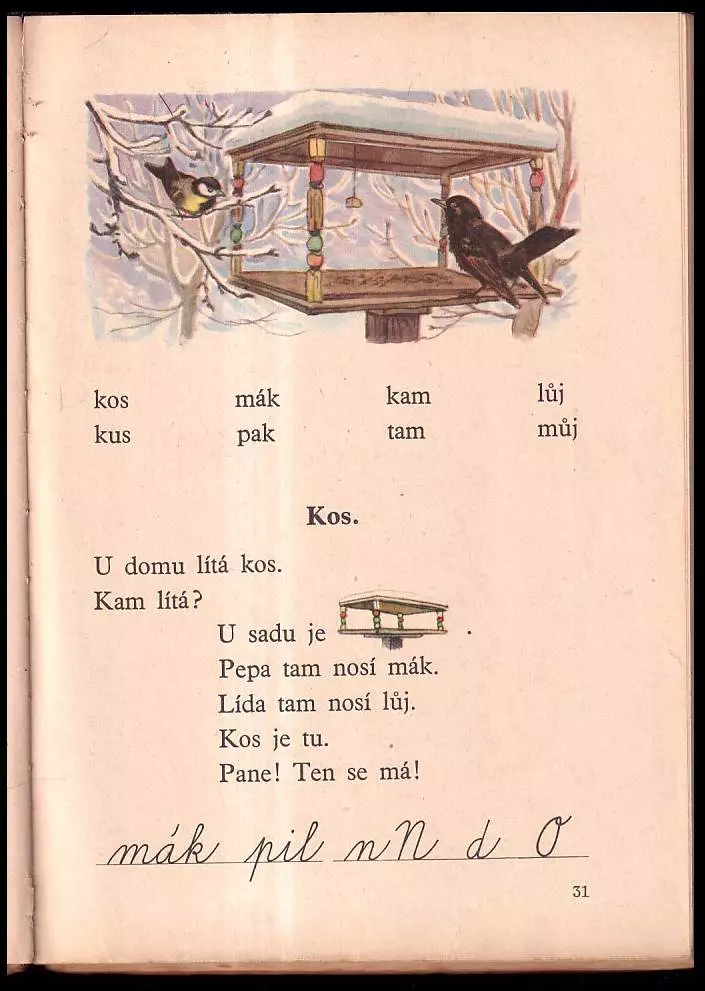 kos mák kam lůj
kus pak tam můj
Kos.
U domu lítá kos.
Kam lítá?
U sadu je .
Pepa tam nosí mák.
Lída tam nosí lůj.
Kos je tu.
Pane! Ten se má!
mák pil nN d O
31